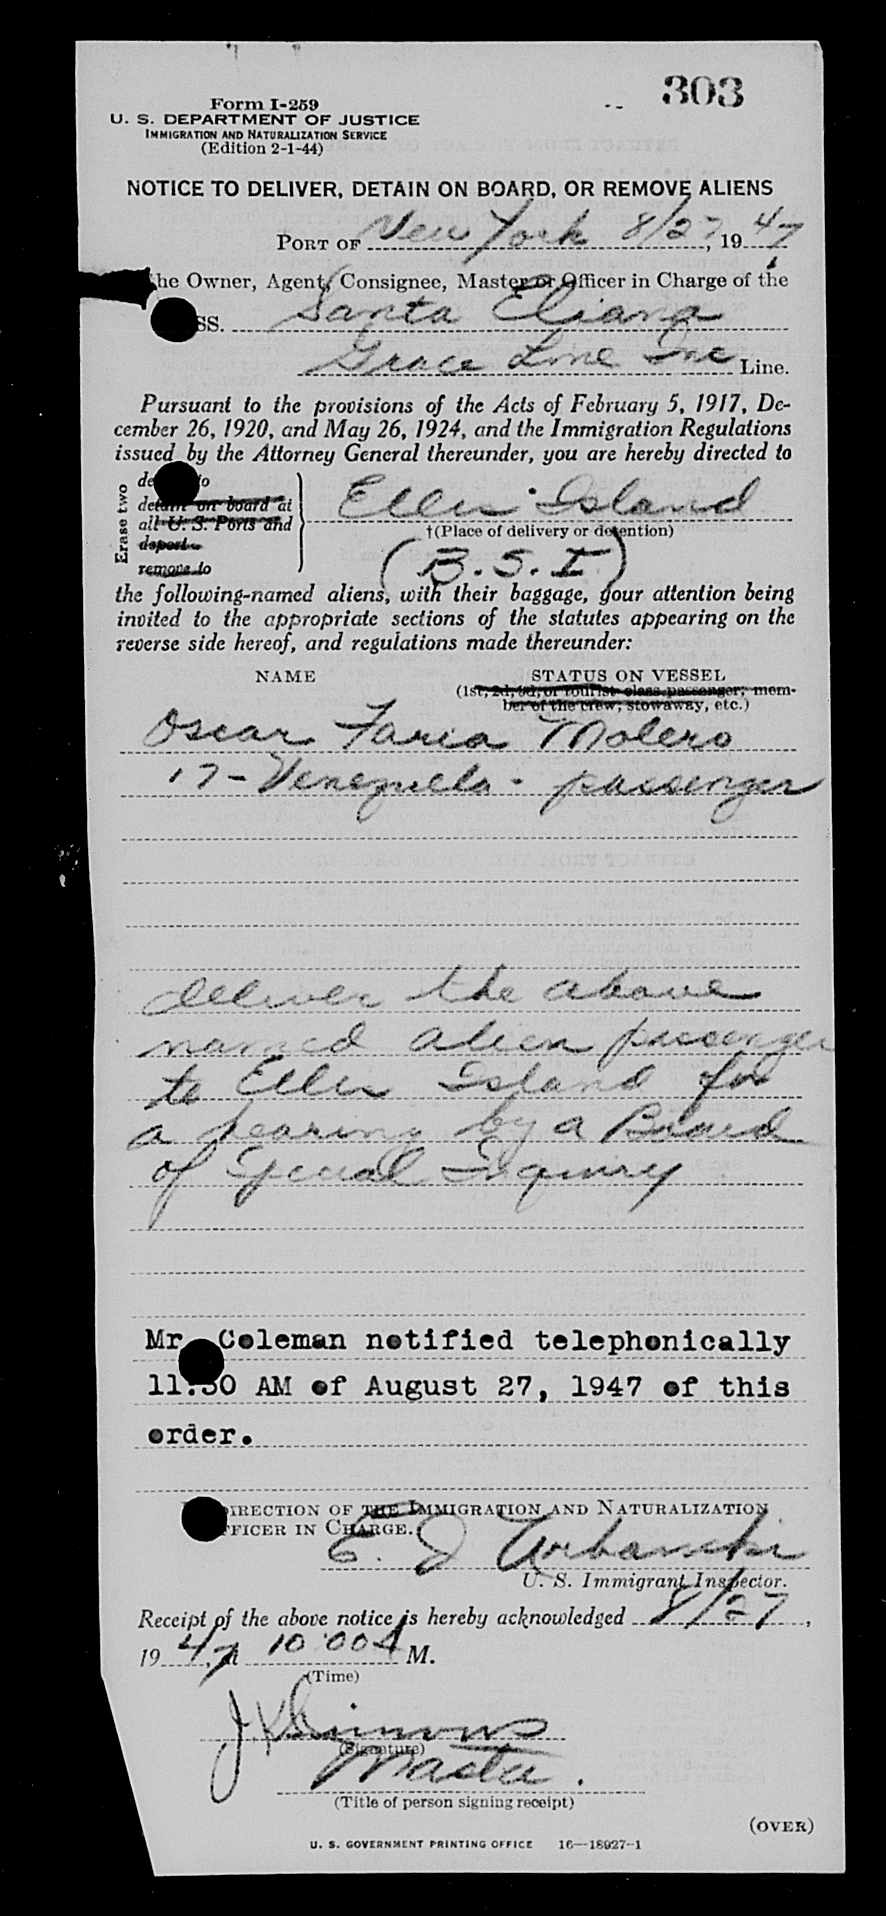 303
Form I-259
U. S. DEPARTMENT OF JUSTICE
IMMIGRATION AND NATURALIZATION SERVICE
(Edition 2-1-44)
NOTICE TO DELIVER, DETAIN ON BOARD, OR REMOVE ALIENS
PORT OF New York 8/27, 19 47
he Owner, Agent, Consignee, Master or Officer in Charge of the
SS. Santa Eliana
Grace Line Inc Line.
Pursuant to the provisions of the Acts of February 5, 1917, De-
cember 26, 1920, and May 26, 1924, and the Immigration Regulations
issued by the Attorney General thereunder, you are hereby directed to
Erase two
de to
detain on board at
all U. S. Ports and
deport
remove to
Ellis Island
†(Place of delivery or detention)
(B.S.I)
the following-named aliens, with their baggage, your attention being
invited to the appropriate sections of the statutes appearing on the
reverse side hereof, and regulations made thereunder:
NAME STATUS ON VESSEL
(1st, 2d, 3d, or tourist class passenger; mem-
ber of the crew; stowaway, etc.)
Oscar Faria Molero
17 - Venezuela - passenger
deliver the above
named alien passenger
to Ellis Island for
a hearing by a Board
of Special Inquiry
Mr. Coleman notified telephonically
11:30 AM of August 27, 1947 of this
order.
DIRECTION OF THE IMMIGRATION AND NATURALIZATION
FFICER IN CHARGE.
E. J Urbanski
U. S. Immigrant Inspector.
Receipt of the above notice is hereby acknowledged 8/27,
19 47, at 10:00 A M.
(Time)
J K Simmons
(Signature)
Master.
(Title of person signing receipt)
(OVER)
U. S. GOVERNMENT PRINTING OFFICE 16—18927-1